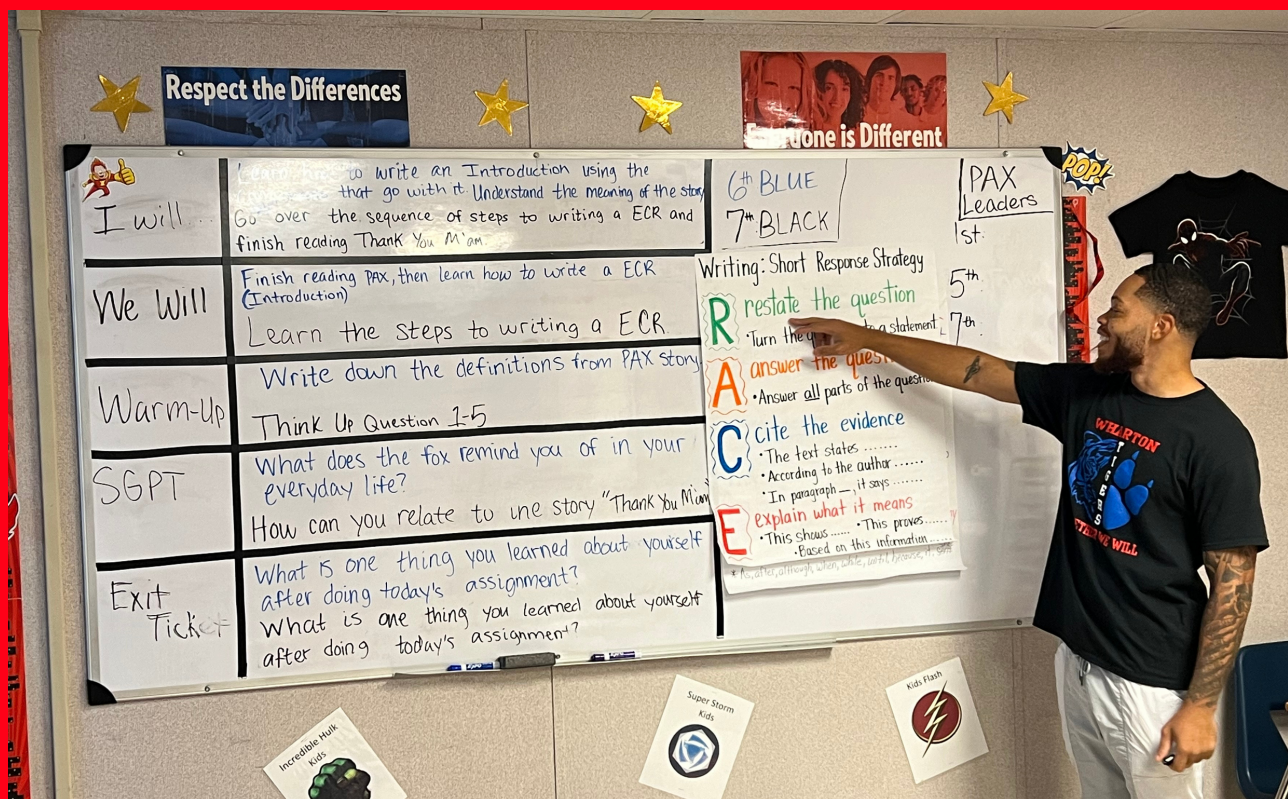 Respect the Differences
Everyone is Different
POP!
I will
to write an Introduction using the
that go with it. Understand the meaning of the story
Go over the sequence of steps to writing a ECR and
finish reading Thank You M'am
We Will
Finish reading PAX, then learn how to write a ECR
(Introduction)
Learn the steps to writing a ECR
Warm-Up
Write down the definitions from PAX story
Think Up Question 1-5
SGPT
What does the fox remind you of in your
everyday life?
How can you relate to the story "Thank You M'am
Exit
Ticket
What is one thing you learned about yourself
after doing today's assignment?
What is one thing you learned about yourself
after doing today's assignment?
6th BLUE
7th BLACK
PAX
Leaders
1st.
5th.
7th.
Writing: Short Response Strategy
R restate the question
•Turn the a statement.
A answer the
•Answer all parts of the
C cite the evidence
•The text states .......
•According to the author ......
•In paragraph —, it says .......
E explain what it means
•This shows ...... •This proves......
•Based on this information......
* As, after, although, when, while, until, because, if,
WHARTON
TIGERS
WE WILL
Incredible Hulk
Kids
Super Storm
Kids
Kids Flash
EXPO